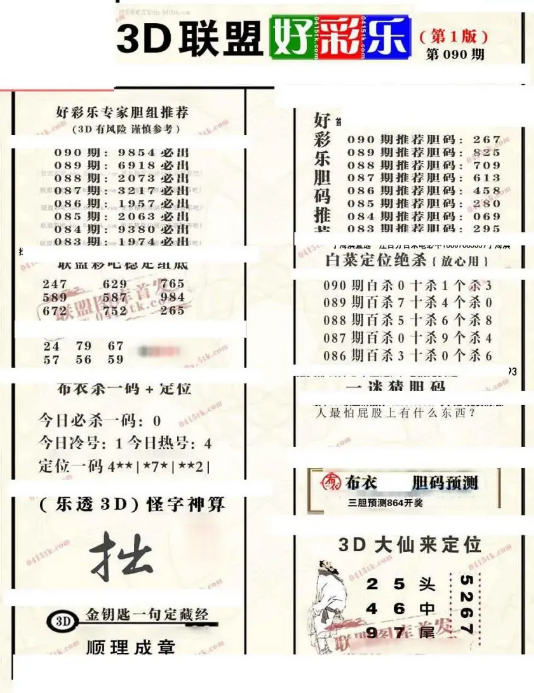 3D联盟好彩乐(第1版)
第090期
好彩乐专家胆组推荐
(3D有风险 谨慎参考)
090期: 9854必出
089期: 6918必出
088期: 2073必出
087期: 3217必出
086期: 1957必出
085期: 2063必出
084期: 9380必出
083期: 1974必出
联盟彩吧稳定组底
247 629 765
589 587 984
672 752 265
24 79 67
57 56 59
布衣杀一码+定位
今日必杀一码: 0
今日冷号: 1 今日热号: 4
定位一码 4**|*7*|**2|
(乐透3D)怪字神算
拙
3D 金钥匙一句定藏经
顺理成章
好彩乐胆码推荐
首
090期推荐胆码: 267
089期推荐胆码: 825
088期推荐胆码: 709
087期推荐胆码: 613
086期推荐胆码: 458
085期推荐胆码: 280
084期推荐胆码: 069
083期推荐胆码: 295
白菜定位绝杀{放心用}
090期百杀0十杀1个杀3
089期百杀7十杀4个杀0
088期百杀5十杀6个杀8
087期百杀0十杀9个杀4
086期百杀3十杀0个杀6
93
一迷猜胆码
人最怕屁股上有什么东西?
布衣 胆码预测
三胆预测864开奖
3D大仙来定位
2 5 头
4 6 中
9 7 尾
5267
联盟图库首发
0415tk.com